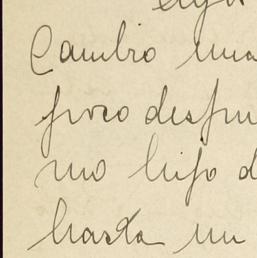 Cambio una
poco despu
mo hijo d
hasta un